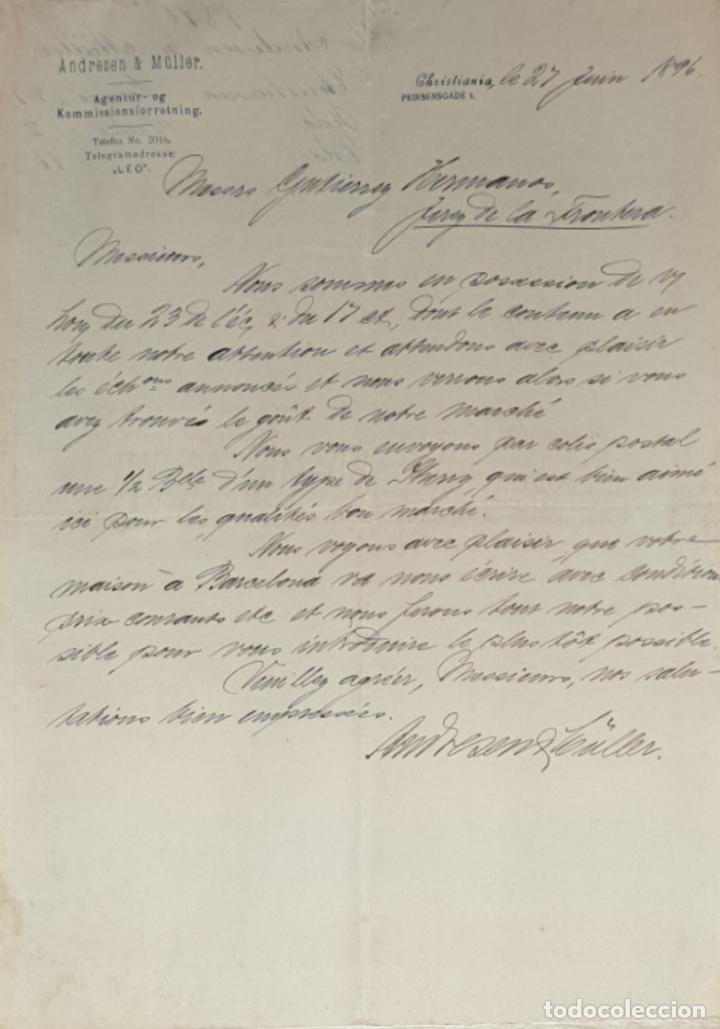 Andresen & Müller.
Agentur- og
Kommissionsforretning.
Telefon No. 2016.
Telegramadresse:
„LEO".
Christiania, le 27 Juin 1896.
PRINSENSGADE
Messrs Gutierrez Hermanos,
Jerez de la Frontera.
Messieurs,
Nous sommes en possession de v/
du 23 de l'éc. & du 17 ct, dont le contenu a eu
toute notre attention et attendons avec plaisir
les éch.ons annoncés et nous verrons alors si vous
avez trouvés le goût de notre marché
Nous vous envoyons par colis postal
une 1/2 Blle d'un type de Sherry qui est bien aimé
ici pour les qualités bon marché.
Nous voyons avec plaisir que votre
maison à Barcelona va nous écrire avec condition
prix courants etc et nous ferons tout notre pos-
sible pour vous introduire le plus tôt possible.
Veuillez agréer, Messieurs, nos salu-
tations bien empressées.
Andresen & Müller.
todocoleccion